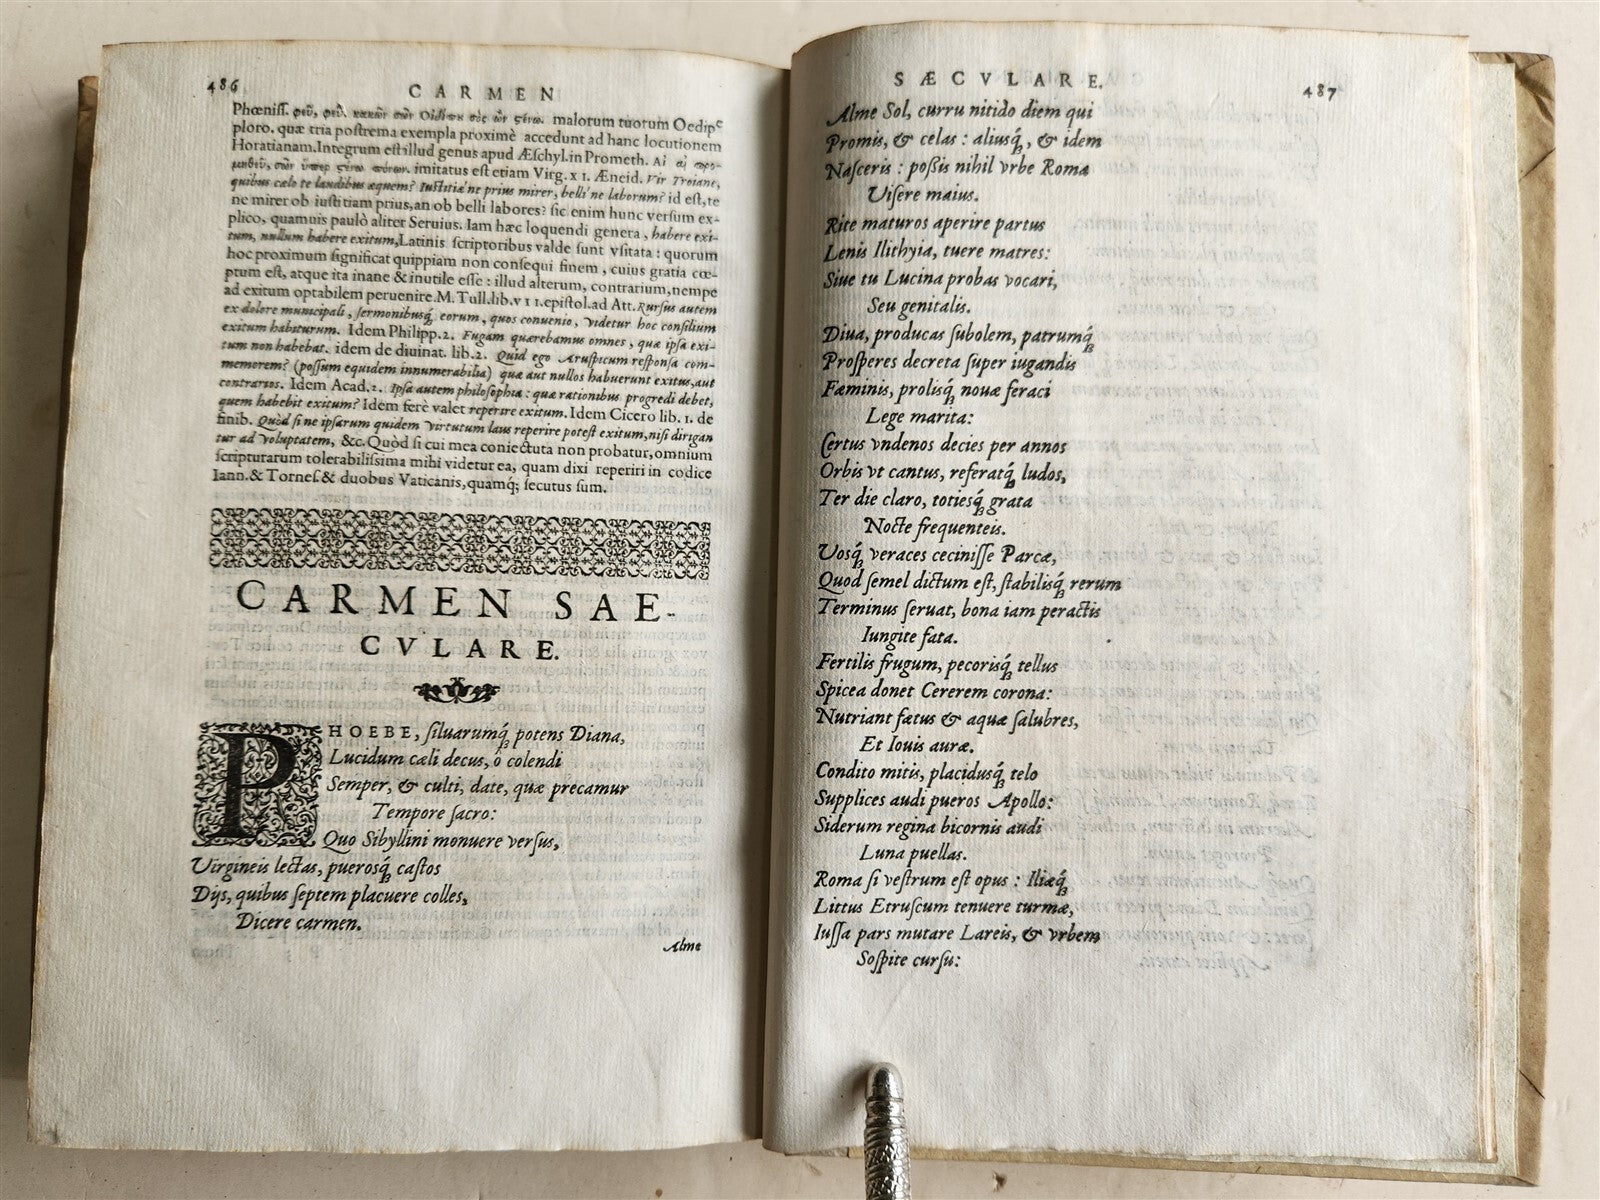 486
CARMEN
Phœniſſ. φεῦ, φεῦ. κακῶν σῶν Οἰδίπου σὸς ὧν ςένω. malorum tuorum Oedip⁹
ploro. quæ tria poſtrema exempla proximè accedunt ad hanc locutionem
Horatianam. Integrum eſt illud genus apud Æſchyl. in Prometh. Αἲ αἲ προ-
μηθεῦ, σῶν ὕπερ ςένω πόνων. imitatus eſt etiam Virg. x I. Æneid. Vir Troiane,
quibus cælo te laudibus æquem? Iuſtitiæ'ne prius mirer, belli'ne laborum? id eſt, te
ne mirer ob iuſtitiam prius, an ob belli labores? ſic enim hunc verſum ex-
plico, quamuis paulò aliter Seruius. Iam hæc loquendi genera, habere exi-
tum, nullum habere exitum, Latinis ſcriptoribus valde ſunt vſitata: quorum
hoc proximum ſignificat quippiam non conſequi finem, cuius gratia cœ-
ptum eſt, atque ita inane & inutile eſſe: illud alterum, contrarium, nempe
ad exitum optabilem peruenire. M. Tull. lib. v I I. epiſtol. ad Att. Rurſus autem
ex dolore municipali, ſermonibuſq́; eorum, quos conuenio, videtur hoc conſilium
exitum habiturum. Idem Philipp. 2. Fugam quærebamus omnes, quæ ipſa exi-
tum non habebat. idem de diuinat. lib. 2. Quid ego Aruſpicum reſponſa com-
memorem? (poſſum equidem innumerabilia) quæ aut nullos habuerunt exitus, aut
contrarios. Idem Acad. 2. Ipſa autem philoſophia: quæ rationibus progredi debet,
quem habebit exitum? Idem ferè valet reperire exitum. Idem Cicero lib. 1. de
finib. Quòd ſi ne ipſarum quidem virtutum laus reperire poteſt exitum, niſi dirigan
tur ad voluptatem, &c. Quòd ſi cui mea coniectura non probatur, omnium
ſcripturarum tolerabiliſſima mihi videtur ea, quam dixi reperiri in codice
Iann. & Torneſ. & duobus Vaticanis, quamq́; ſecutus ſum.
CARMEN SAE-
CVLARE.
PHOEBE, ſiluarumq́; potens Diana,
Lucidum cæli decus, ô colendi
Semper, & culti, date, quæ precamur
Tempore ſacro:
Quo Sibyllini monuere verſus,
Virgineis lectas, pueroſq́; caſtos
Dijs, quibus ſeptem placuere colles,
Dicere carmen.
Alme
SÆCVLARE.
487
Alme Sol, curru nitido diem qui
Promis, & celas: aliuſq́;, & idem
Naſceris: poßis nihil vrbe Roma
Viſere maius.
Rite maturos aperire partus
Lenis Ilithyia, tuere matres:
Siue tu Lucina probas vocari,
Seu genitalis.
Diua, producas ſubolem, patrumq́;
Proſperes decreta ſuper iugandis
Fæminis, proliſq́; nouæ feraci
Lege marita:
Certus vndenos decies per annos
Orbis vt cantus, referatq́; ludos,
Ter die claro, totieſq́; grata
Nocte frequenteis.
Voſq́; veraces ceciniſſe Parcæ,
Quod ſemel dictum eſt, ſtabiliſq́; rerum
Terminus ſeruat, bona iam peractis
Iungite fata.
Fertilis frugum, pecoriſq́; tellus
Spicea donet Cererem corona:
Nutriant fætus & aquæ ſalubres,
Et Iouis auræ.
Condito mitis, placiduſq́; telo
Supplices audi pueros Apollo:
Siderum regina bicornis audi
Luna puellas.
Roma ſi veſtrum eſt opus: Iliæq́;
Littus Etruſcum tenuere turmæ,
Iuſſa pars mutare Lareis, & vrbem
Soſpite curſu: